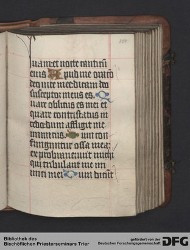 sua nocte canticū
eius Apud me oracio
deo vite mee dicam deo
susceptor meus es
Quare oblitus es mei et
quare contristatus in
cedo dum affligit me
inimicus Dum con
fringuntur ossa mea
exprobraverunt michi
qui tribulant me ini
mici mei Dum dicūt
Bibliothek des
Bischöflichen Priesterseminars Trier
gefördert von der
Deutschen Forschungsgemeinschaft
DFG